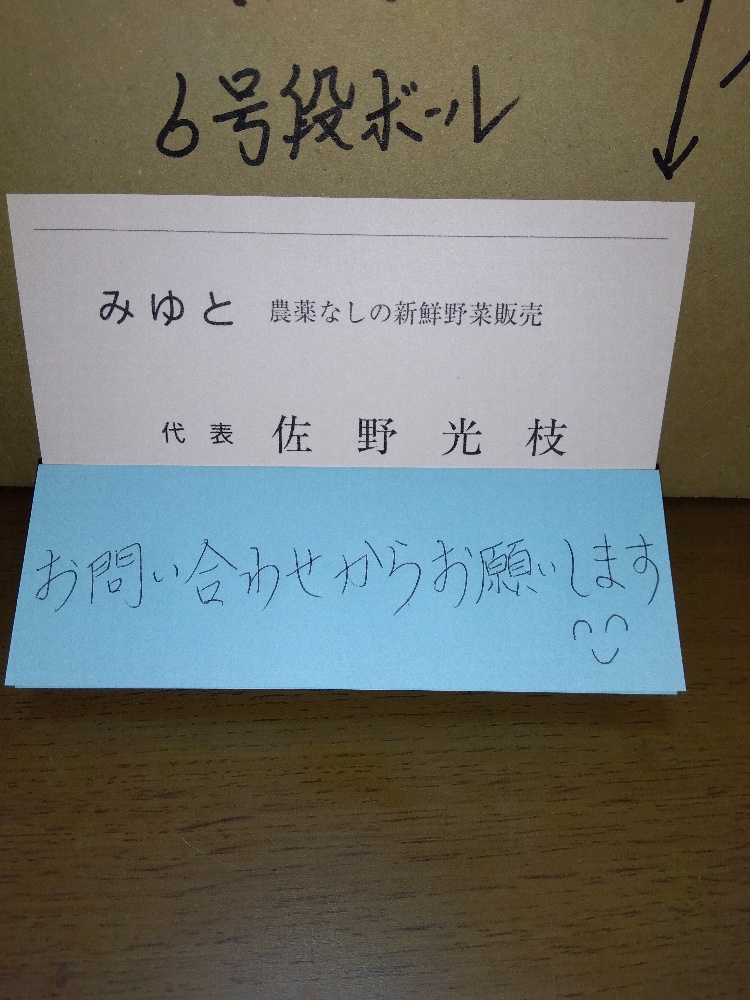 6号段ボール
みゆと 農薬なしの新鮮野菜販売
代表 佐野光枝
お問い合わせからお願いします